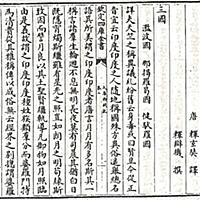 三國
唐 釋玄奘 譯
釋辯機 撰
濫波國 那揭羅曷國 健馱邏國
詳夫天竺之稱異議糺紛舊云身毒或曰賢豆今從正
音宜云印度印度之人隨地稱國殊方異俗遙舉總名
欽定四庫全書
語其所美謂之印度印度者唐言月月有多名斯其一
稱言諸羣生輪迴不息無明長夜莫有司晨其猶白日
既隱宵燭斯繼雖有星光之照豈如朗月之明苟緣斯
致因而譬月良以其土聖賢繼軌導凡御物如月照臨
由是義故謂之印度印度種姓族類羣分而婆羅門特
為清貴從其雅稱傳以成俗無云經界之別總謂婆羅